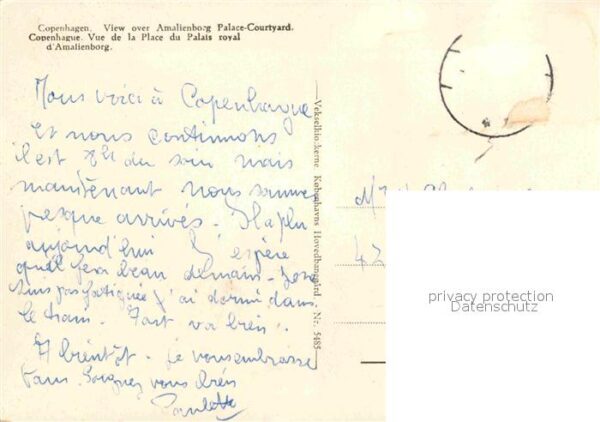 Copenhagen. View over Amalienborg Palace-Courtyard.
Copenhague. Vue de la Place du Palais royal
d'Amalienborg.
Nous voici à Copenhague
et nous continuons
il est du soir mais
maintenant nous sommes
presque arrivés. Il a plu
aujourd'hui j'espère
qu'il fera beau demain. Je ne
suis pas fatiguée j'ai dormi dans
le train. Tout va bien.
A bientôt. Je vous embrasse
tous. Soignez vous bien
Paulette
Vekselkioskerne Københavns Hovedbanegård. Nr. 5485
42
privacy protection
Datenschutz